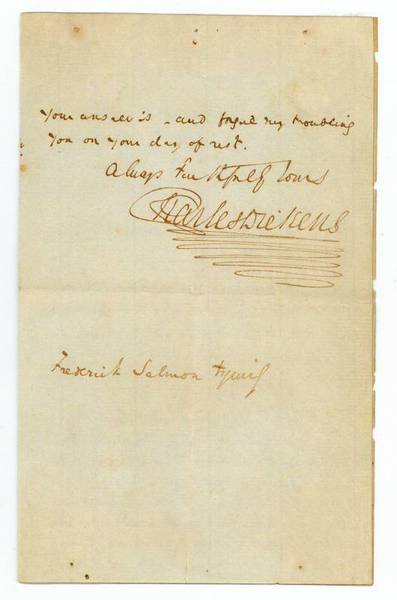 your answer is – and forgive my troubling
you on your day of rest.
Always Faithfully Yours
Charles Dickens
Frederick Salmon Esquire